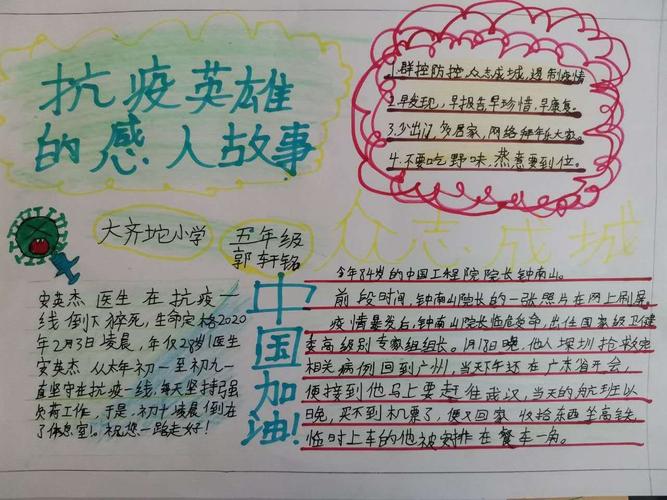 抗疫英雄
的感人故事
1.群控防控,众志成城,遏制疫情
2.早发现,早报告,早珍惜,早康复。
3.少出门,多居家,网络拜年大家。
4.不要吃野味,蒸煮要到位。
大齐坨小学
五年级
郭轩铭
众志成城
中国加油!
安英杰医生在抗疫一
线倒下猝死,生命定格2020
年2月3日凌晨,年仅28岁医生
安英杰从大年初一至初九一
直坚守在抗疫一线,每天坚持超强
负荷工作,于是初十凌晨倒在
了休息室。祝您一路走好!
今年84岁的中国工程院院长钟南山。
前段时间,钟南山院长的一张照片在网上刷屏
疫情暴发后,钟南山院长临危受命,出任国家级卫健
委高级别专家组组长。1月18日晚,他从深圳抢救完
相关病例回到广州,当天下午还在广东省开会,
便接到他马上要赶往武汉,当天的航班以
晚,买不到机票了,便又回家收拾东西坐高铁
临时上车的他被安排在餐车一角。